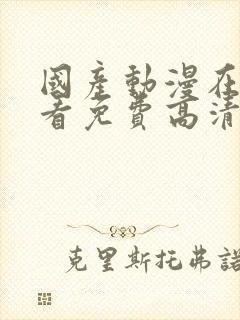 國産動漫在
看免費高清
克里斯托弗諾